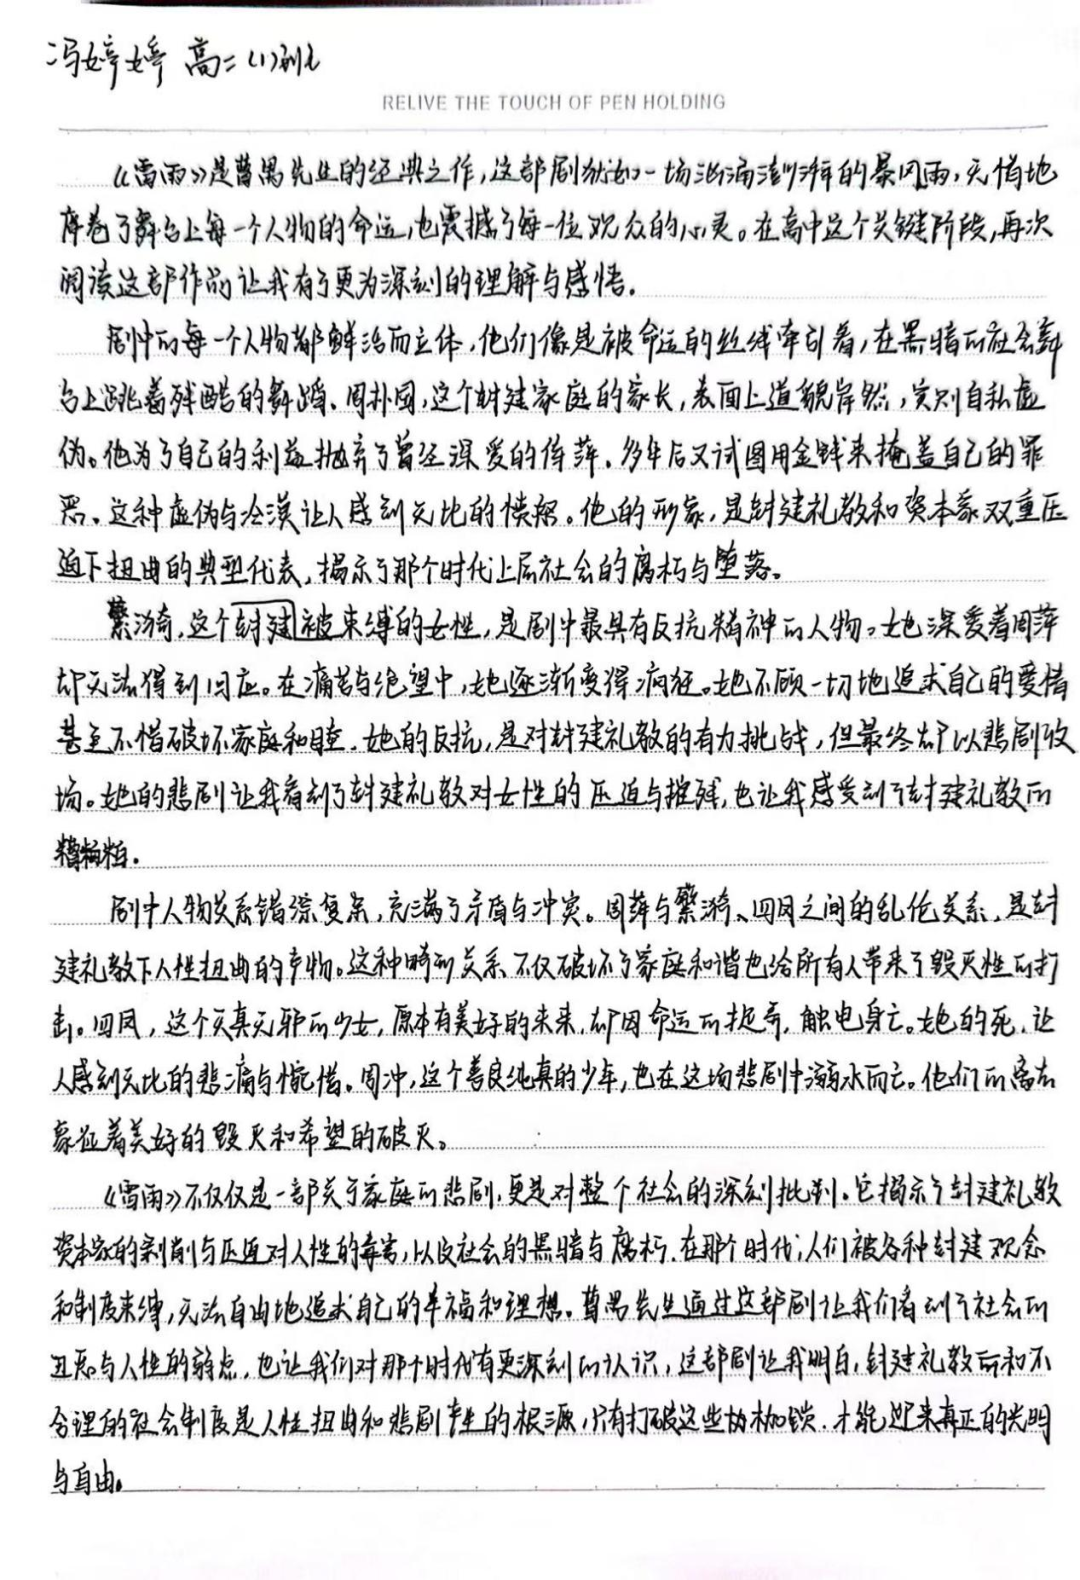 冯婷婷 高二(1)
RELIVE THE TOUCH OF PEN HOLDING
《雷雨》是曹禺先生的经典之作,这部剧犹如一场汹涌澎湃的暴风雨,无情地
席卷了舞台上每一个人物的命运,也震撼了每一位观众的心灵。在高中这个关键阶段,再次
阅读这部作品让我有了更为深刻的理解与感悟。
剧中的每一个人物都鲜活而立体,他们像是被命运的丝线牵引着,在黑暗的社会舞
台上跳着残酷的舞蹈。周朴园,这个封建家庭的家长,表面上道貌岸然,实则自私虚
伪。他为了自己的利益抛弃了曾经深爱的侍萍,多年后又试图用金钱来掩盖自己的罪
恶。这种虚伪与冷漠让人感到无比的愤怒。他的形象,是封建礼教和资本家双重压
迫下扭曲的典型代表,揭示了那个时代上层社会的腐朽与堕落。
繁漪,这个封建被束缚的女性,是剧中最具有反抗精神的人物。她深爱着周萍
却无法得到回应。在痛苦与绝望中,她逐渐变得疯狂。她不顾一切地追求自己的爱情
甚至不惜破坏家庭和睦。她的反抗,是对封建礼教的有力挑战,但最终却以悲剧收
场。她的悲剧让我看到了封建礼教对女性的压迫与摧残,也让我感受到了封建礼教的
糟粕。
剧中人物关系错综复杂,充满了矛盾与冲突。周萍与繁漪、四凤之间的乱伦关系,是封
建礼教下人性扭曲的产物。这种畸形关系不仅破坏了家庭和谐也给所有人带来了毁灭性的打
击。四凤,这个天真无邪的少女,原本有美好的未来,却因命运的捉弄,触电身亡。她的死,让
人感到无比的悲痛与惋惜。周冲,这个善良纯真的少年,也在这场悲剧中溺水而亡。他们的离去
象征着美好的毁灭和希望的破灭。
《雷雨》不仅仅是一部关于家庭的悲剧,更是对整个社会的深刻批判。它揭示了封建礼教
资本家的剥削与压迫对人性的毒害,以及社会的黑暗与腐朽。在那个时代,人们被各种封建观念
和制度束缚,无法自由地追求自己的幸福和理想。曹禺先生通过这部剧让我们看到了社会的
丑恶与人性的弱点,也让我们对那个时代有更深刻的认识,这部剧让我明白,封建礼教和不
合理的社会制度是人性扭曲和悲剧产生的根源,只有打破这些枷锁,才能迎来真正的光明
与自由。